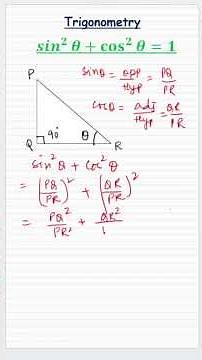 Trigonometry
sin² θ + cos² θ = 1
P
sinθ = opp/Hyp = PQ/PR
cosθ = adj/Hyp = QR/PR
90° θ
Q R
sin² θ + cos² θ
= (PQ/PR)² + (QR/PR)²
= PQ²/PR² + QR²/